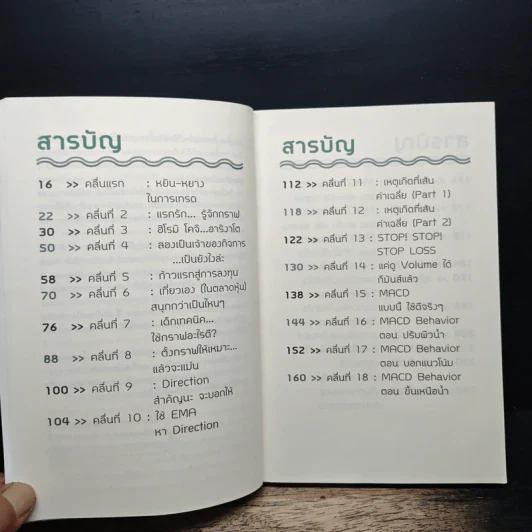 สารบัญ
16 >> คลื่นแรก : หยิน-หยาง
ในการเทรด
22 >> คลื่นที่ 2 : แรกรัก... รู้จักกราฟ
30 >> คลื่นที่ 3 : ฮิโรมิ โคจิ...อาริงาโต
50 >> คลื่นที่ 4 : ลองเป็นเจ้าของกิจการ
...เป็นยังไงล่ะ
58 >> คลื่นที่ 5 : ก้าวแรกสู่การลงทุน
70 >> คลื่นที่ 6 : เที่ยวเอง (ในตลาดหุ้น)
สนุกกว่าเป็นไหนๆ
76 >> คลื่นที่ 7 : เด็กเทคนิค...
ใช้กราฟอะไรดี?
88 >> คลื่นที่ 8 : ตั้งกราฟให้เหมาะ...
แล้วจะแม่น
100 >> คลื่นที่ 9 : Direction
สำคัญนะ จะบอกให้
104 >> คลื่นที่ 10 : ใช้ EMA
หา Direction
สารบัญ
112 >> คลื่นที่ 11 : เหตุเกิดที่เส้น
ค่าเฉลี่ย (Part 1)
118 >> คลื่นที่ 12 : เหตุเกิดที่เส้น
ค่าเฉลี่ย (Part 2)
122 >> คลื่นที่ 13 : STOP! STOP!
STOP LOSS
130 >> คลื่นที่ 14 : แค่ดู Volume ได้
ก็มันส์แล้ว
138 >> คลื่นที่ 15 : MACD
แบบนี้ ใช้ดีจริงๆ
144 >> คลื่นที่ 16 : MACD Behavior
ตอน ปริ่มผิวน้ำ
152 >> คลื่นที่ 17 : MACD Behavior
ตอน บอกแนวโน้ม
160 >> คลื่นที่ 18 : MACD Behavior
ตอน ขึ้นเหนือน้ำ